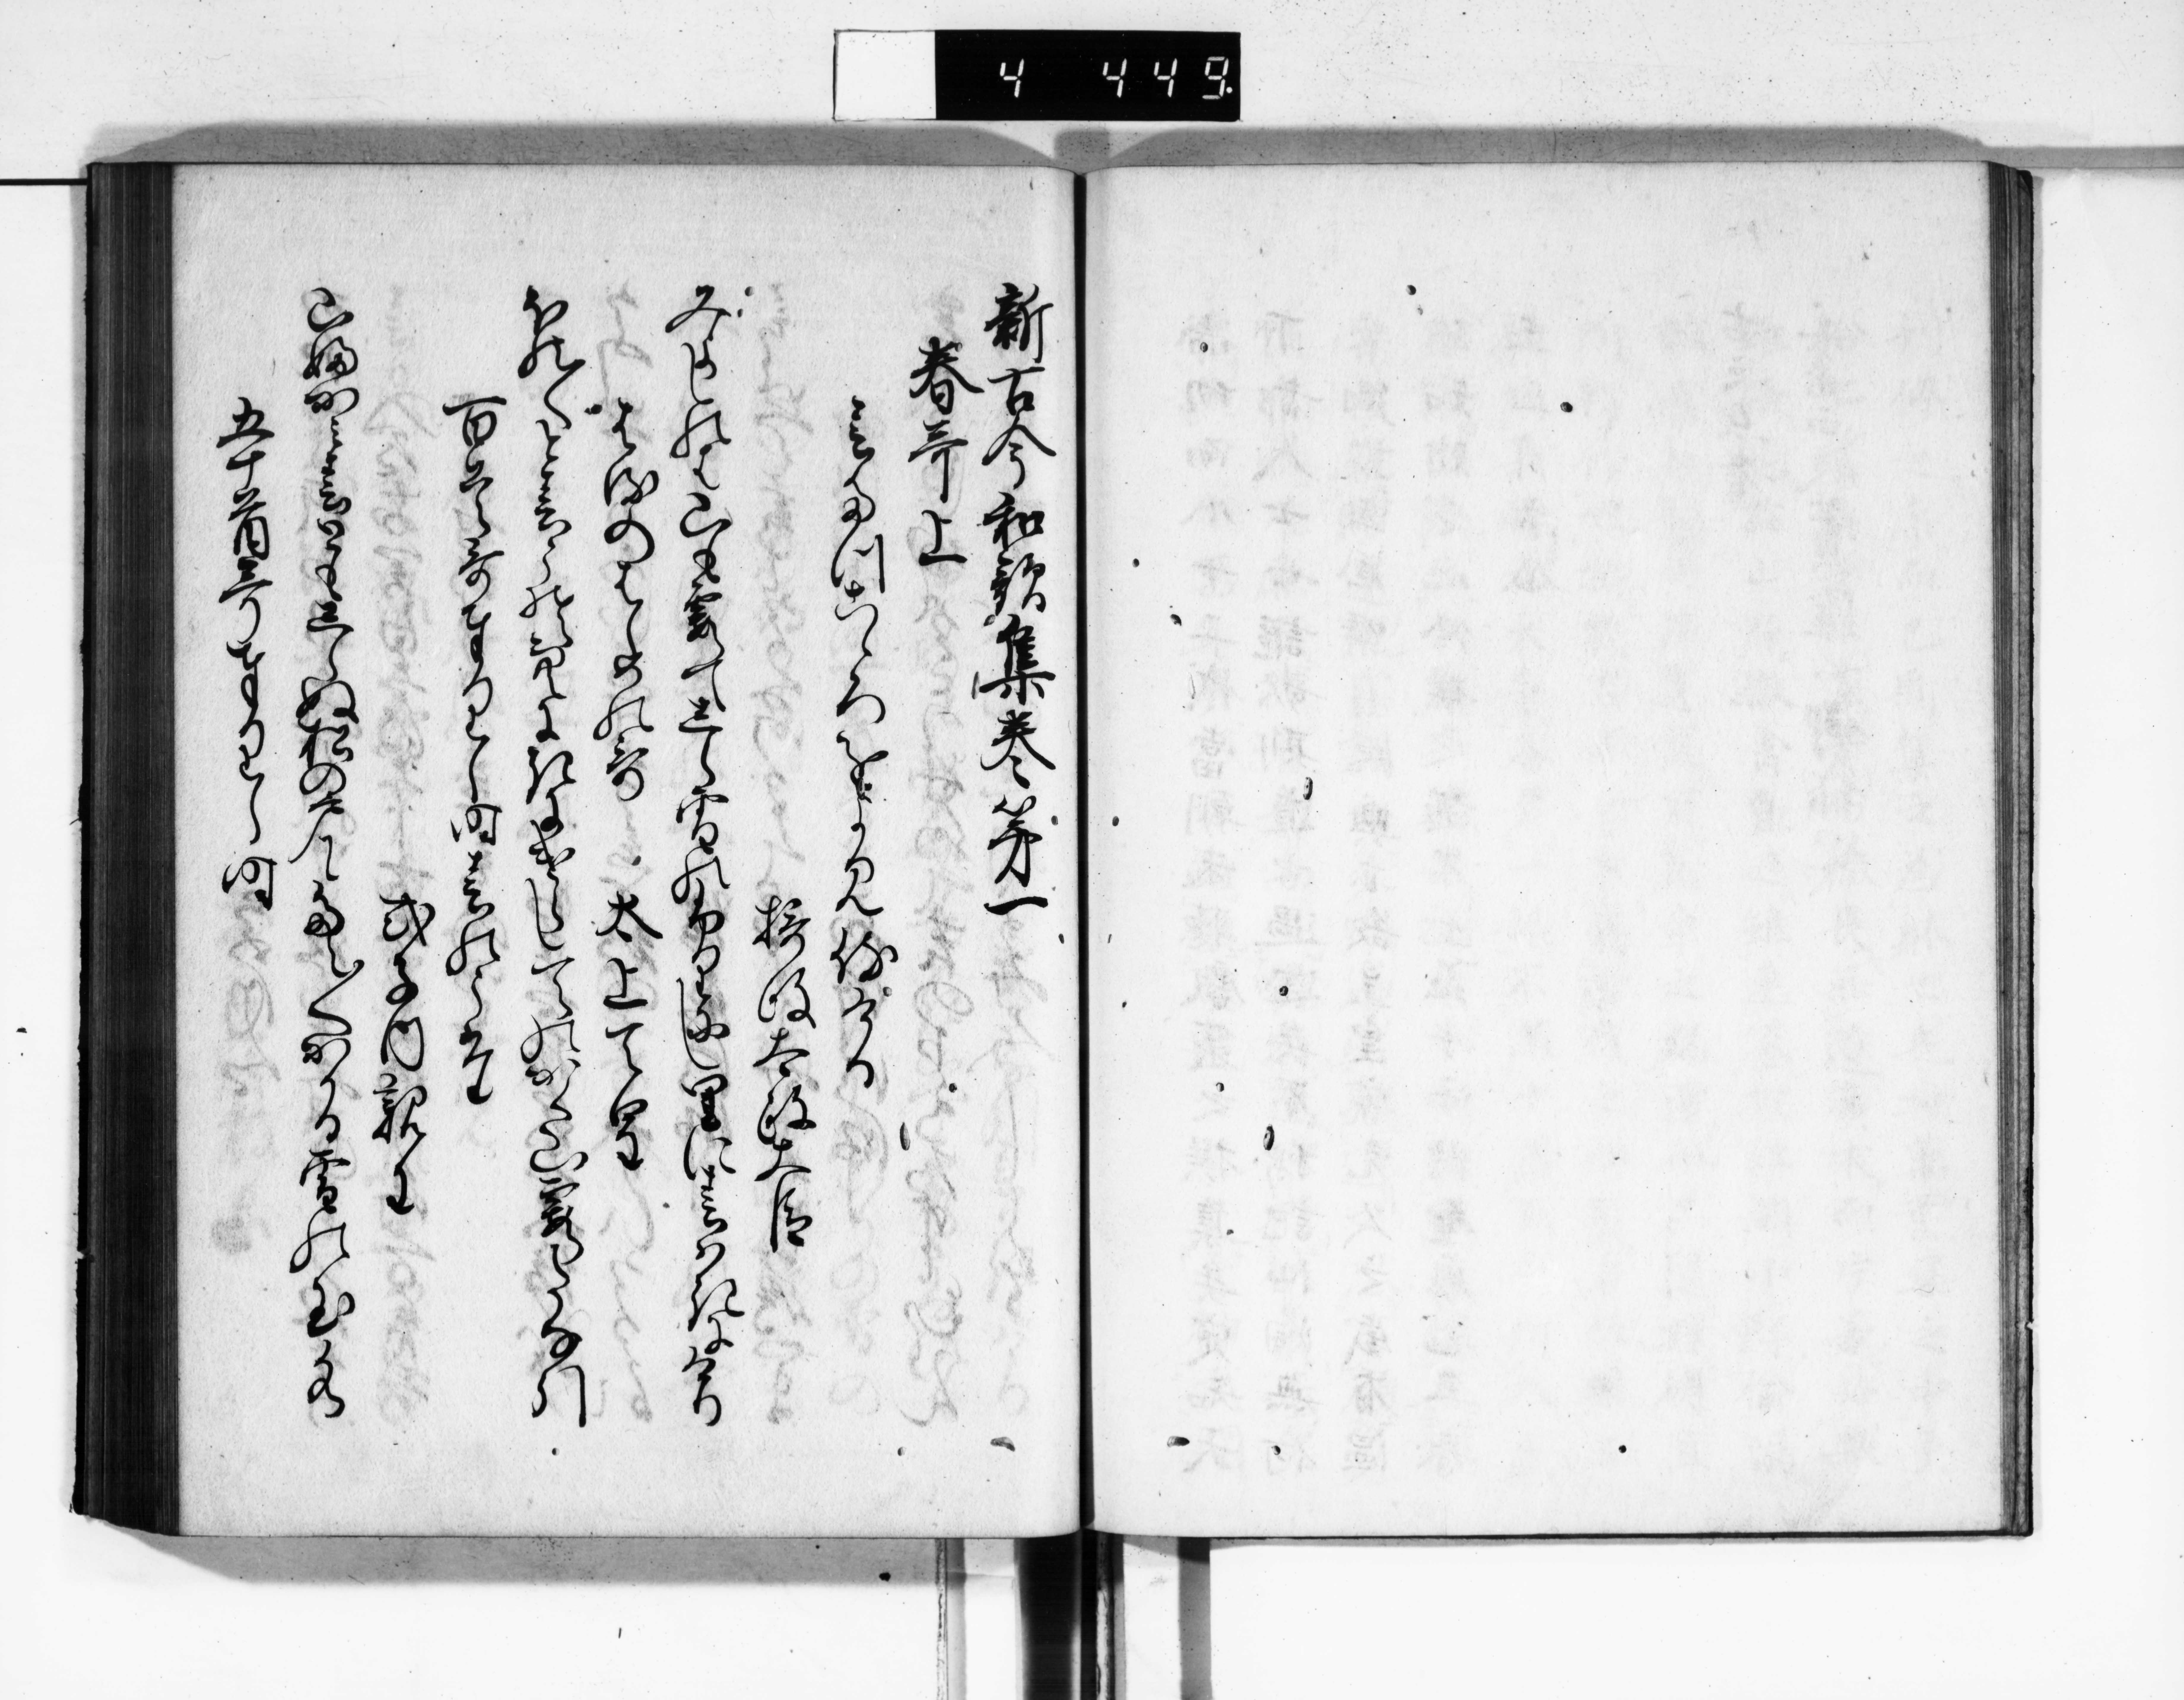 4 449.
新古今和歌集巻第一
春哥上
はるたつこゝろをよみ侍ける
摂政太政大臣
みよしのは山も霞てしら雪のふりにし里に春はきにけり
はるのはしめの哥 太上天皇
ほの〱と春こそ空にきにけらしあまのかく山霞たなひく
百首哥たてまつりし時春の哥
式子内親王
山ふかみ春ともしらぬ松の戸にたえ〱かゝる雪の玉水
五十首哥たてまつりし時